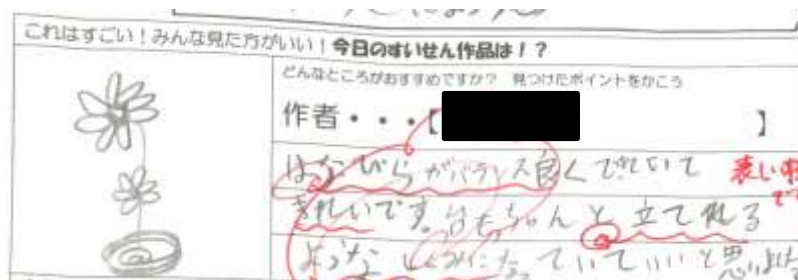 これはすごい！みんな見た方がいい！今日のすいせん作品は！？
どんなところがおすすめですか？ 見つけたポイントをかこう
作者・・・【 】
はなびらがバランス良くできていて
きれいです。台もちゃんと立てれる
ような になっていていいと思いました